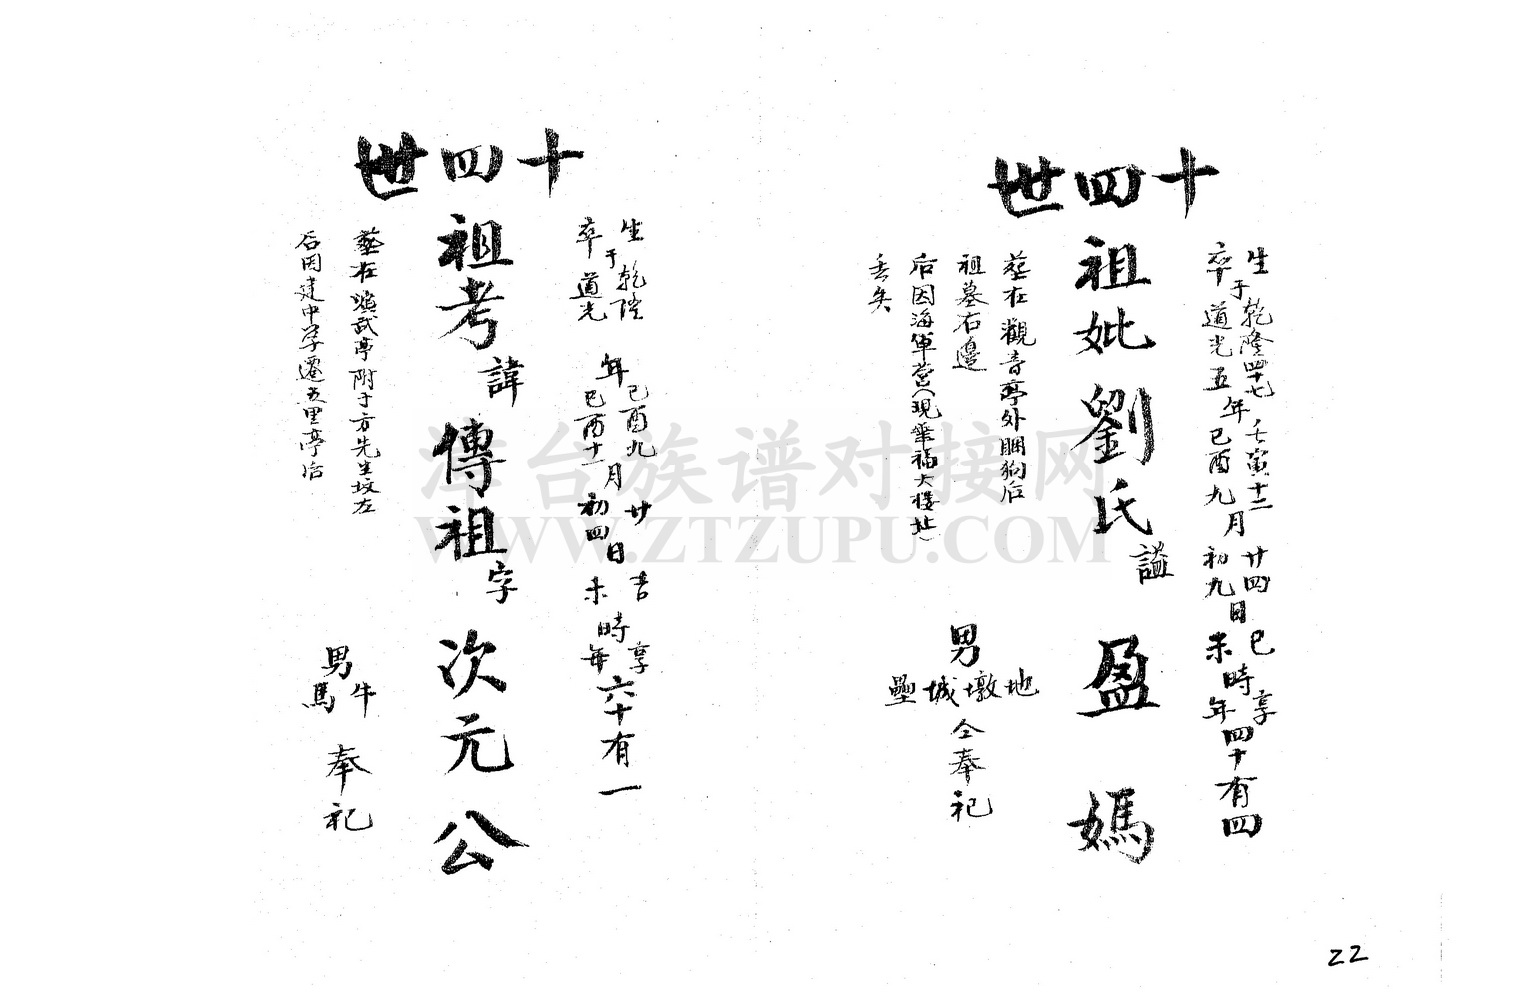 十四世
生 乾隆四十七 壬寅十二 廿四 巳 享
于 年 月 日 時 年四十有四
卒 道光五 己酉九 初九 未
祖妣劉氏謚盈媽
葬在觀音亭外睏狗后
祖墓右邊
后因海軍营(現華福大楼址)
丢矣
男 地墩城壘 仝奉祀
十四世
生 乾隆 己酉九 廿 吉 享
于 年 月 日 時 年六十有一
卒 道光 己酉十一 初四 未
祖考諱傳祖字次元公
葬在演武亭附于方先生坟左
后因建中学遷五里亭后
男 牛馬 奉祀
22
洋台族谱对接网
WWW.ZTZUPU.COM